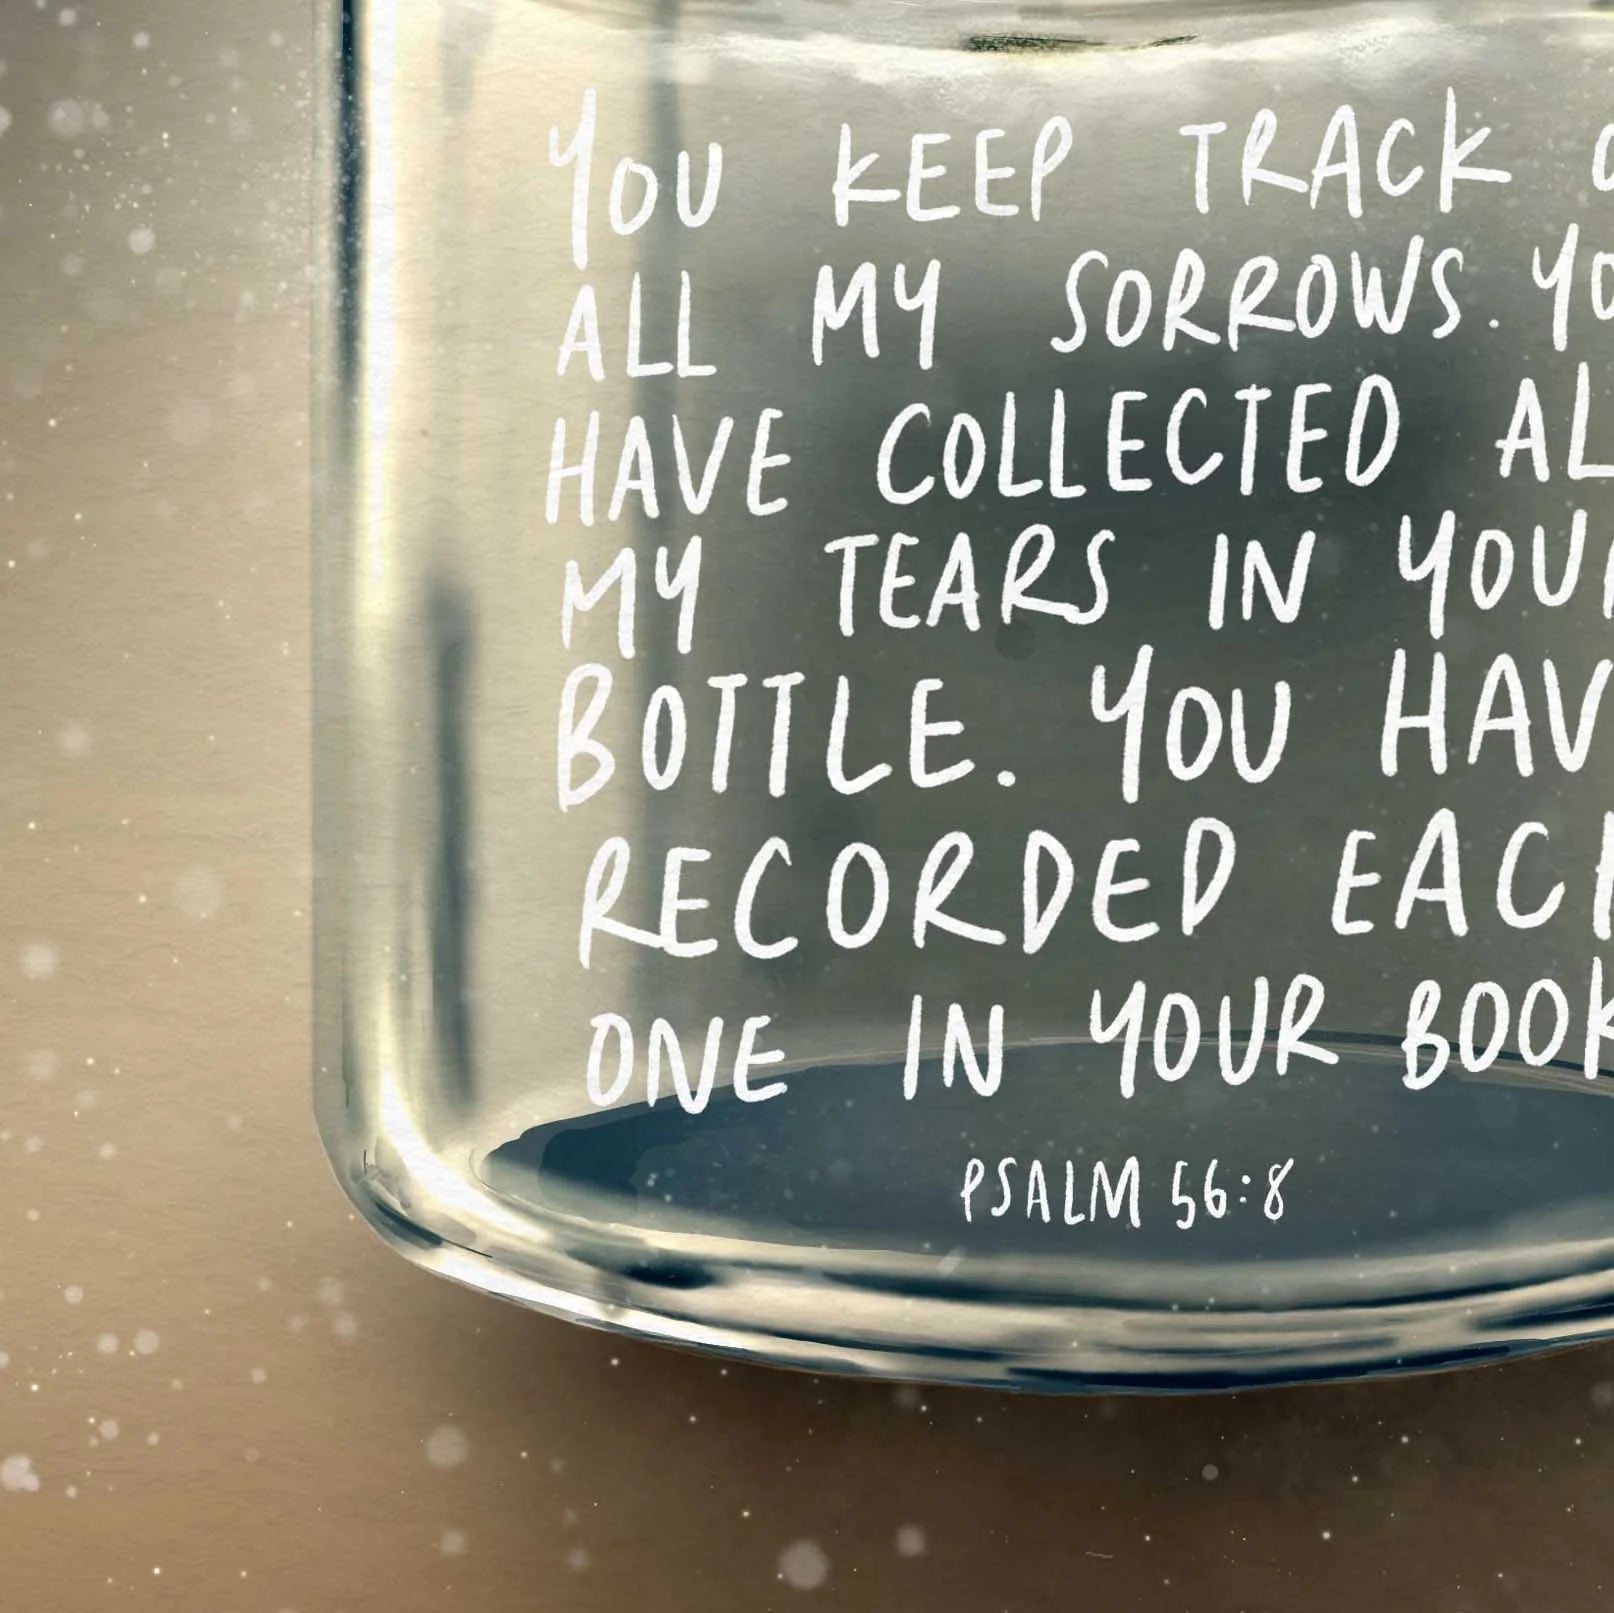 YOU KEEP TRACK
ALL MY SORROWS. YO
HAVE COLLECTED AL
MY TEARS IN YOUR
BOTTLE. YOU HAV
RECORDED EACH
ONE IN YOUR BOOK
PSALM 56:8